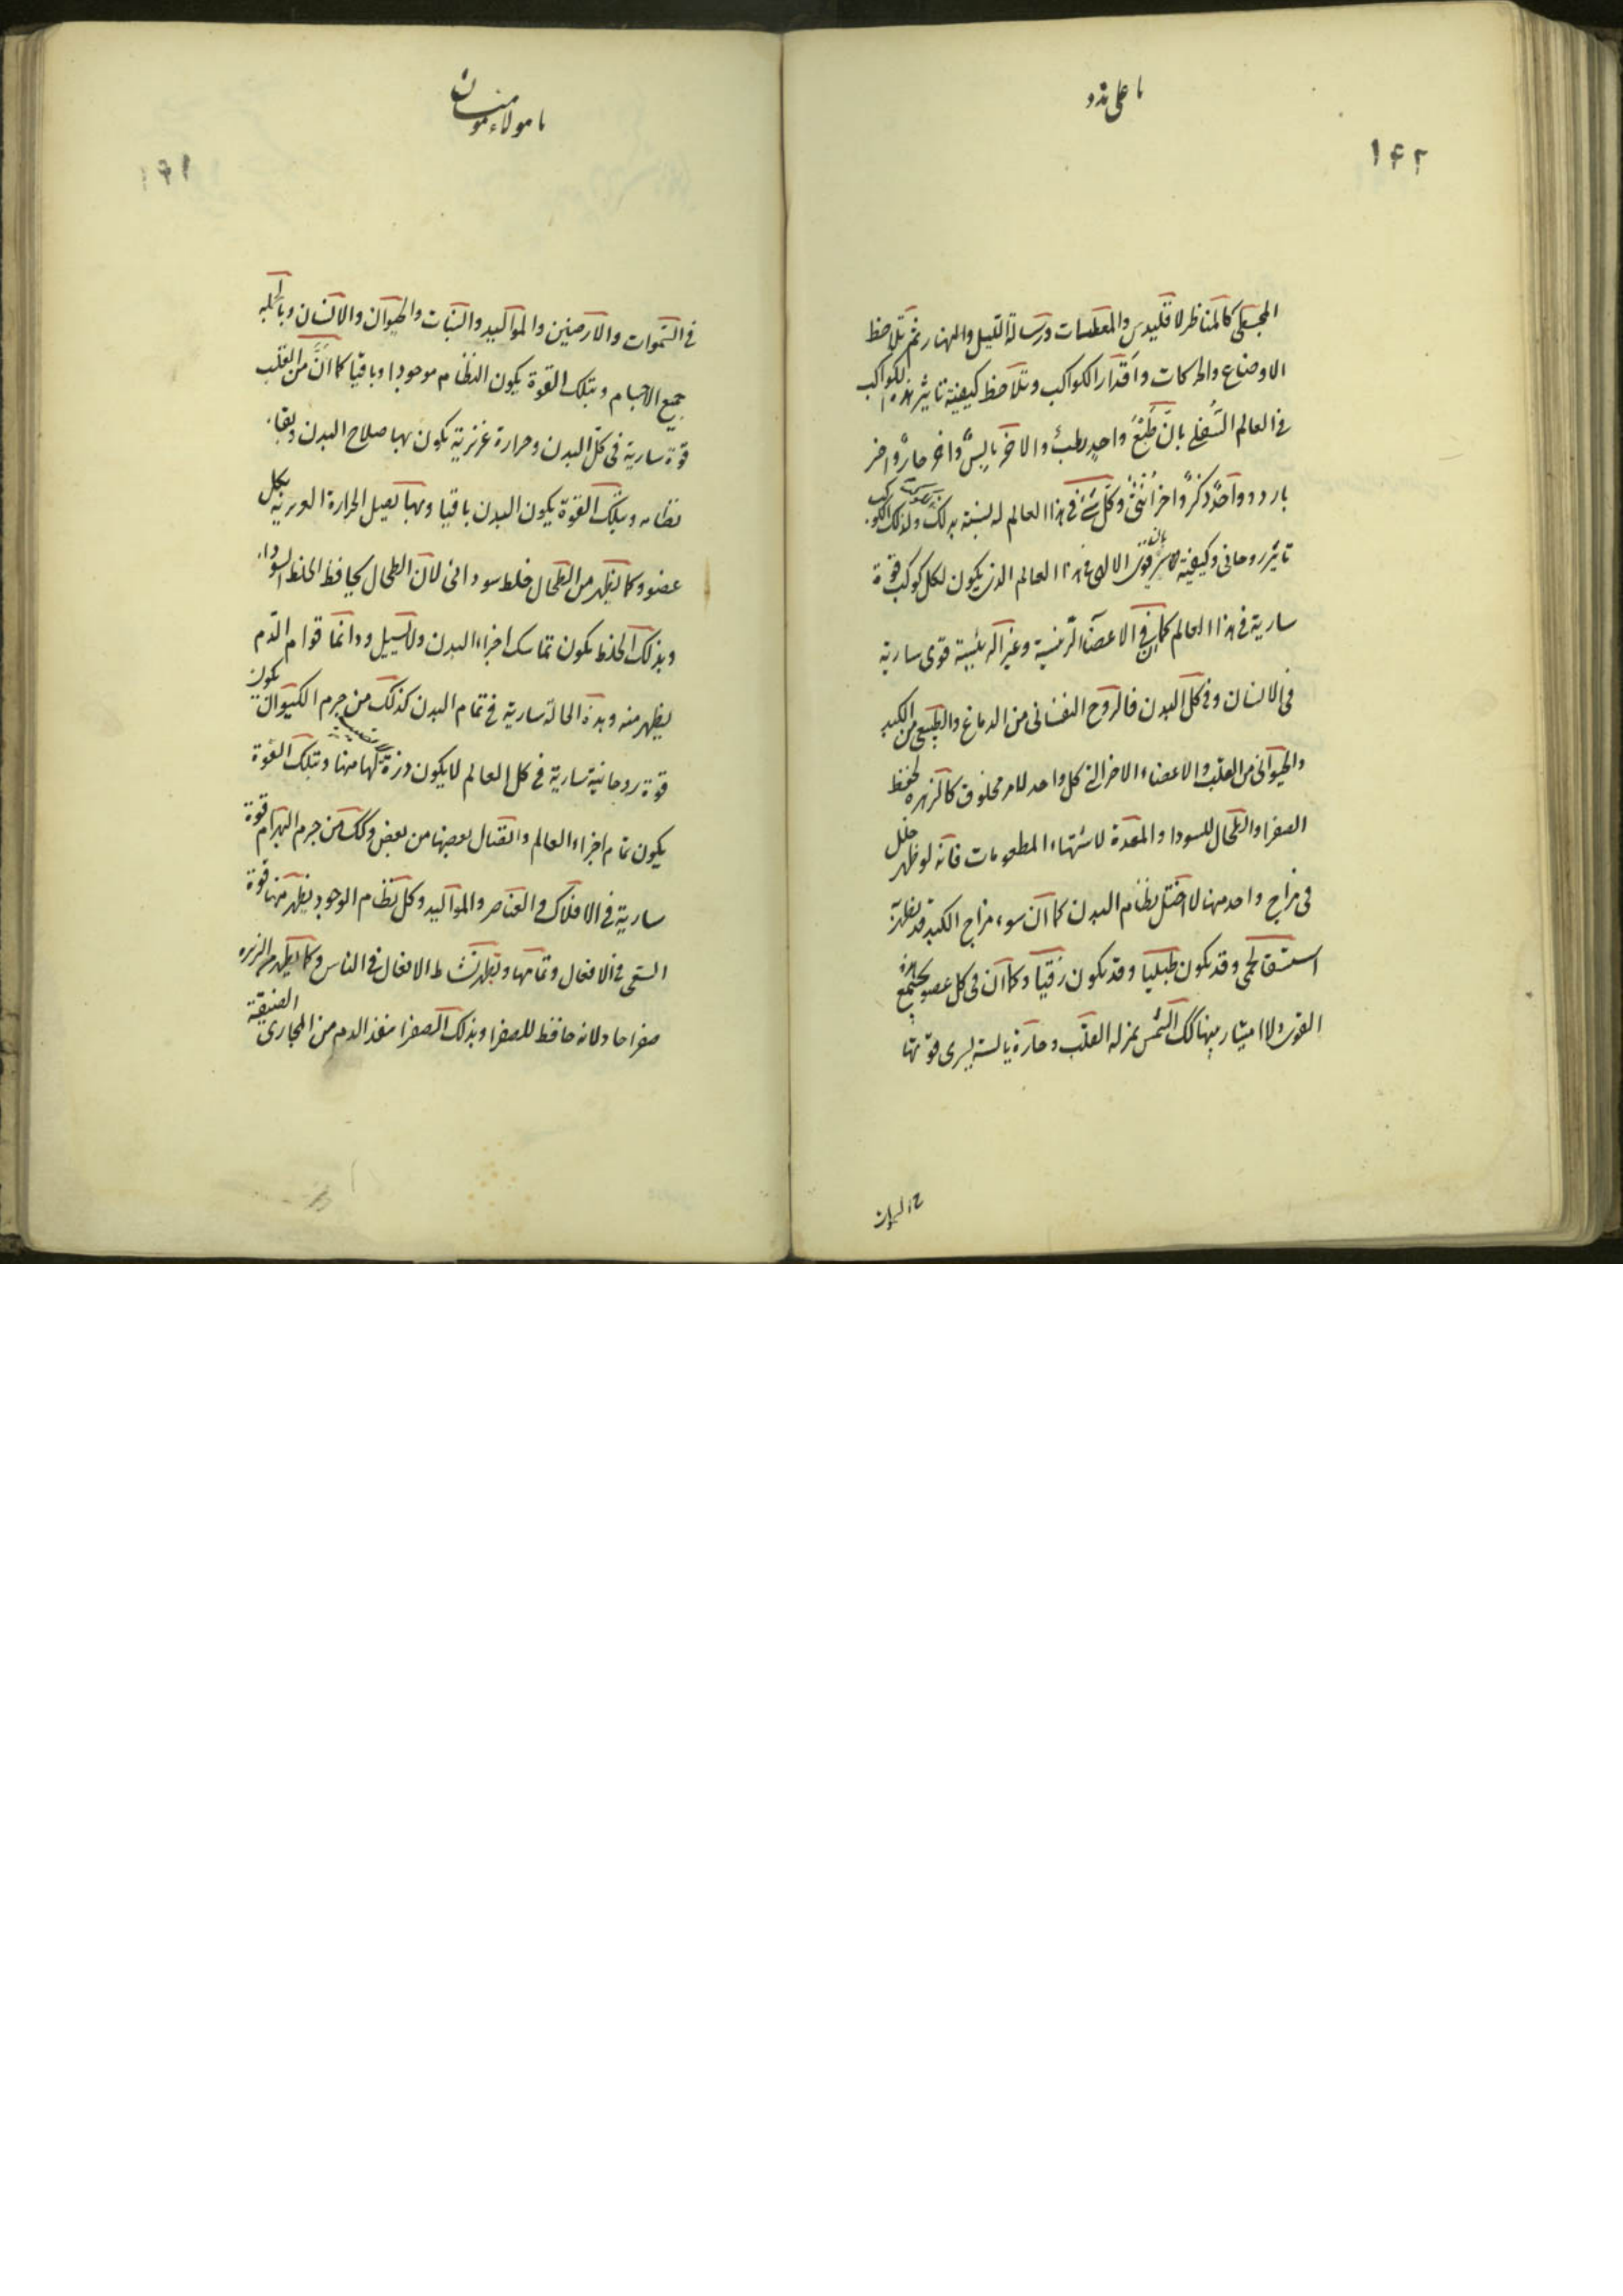 يا على مدد
١٤٢
المجسطى كالمناظر لاقليدس والمعطيات ورسالة الليل والنهار ثم تلاحظ
الاوضاع والحركات واقدار الكواكب وتلاحظ كيفية تاثير هذه الكواكب
فى العالم السفلى بان طبع واحد رطب والاخر يابس واخر حار واخر
بارد وواحد ذكر واخر انثى وكل شئ فى هذا العالم له نسبة بذلك ولذلك
تاثير روحانى وكيفية العالم الذى يكون لكل كوكب قوة
سارية فى هذا العالم كما فى الاعضآ الرئيسية وغير الرئيسية قوى سارية
فى الانسان وفى كل البدن فالروح النفسانى من الدماغ والطبيعى من الكبد
والحيوانى من القلب والاعضاء الاخر التى كل واحد لامر مخلوق كالزهره لحفظ
الصفرا والطحال للسودا والمعدة لاشتهاء المطعومات فانه لو ظهر خلل
فى مزاج واحد منها لاختل نظام البدن كما ان سوء مزاج الكبد قد يظهر
استسقا لحمى وقد يكون طبليا وقد يكون زقيا وكما ان فى كل عضو يجتمع
القوى ولا امتياز بينها كك الشمس بمنزله القلب وحارة يابسة يسرى قوتها
يا مولاء مومنان
١٤١
فى السموات والارضين والمواليد والنبات والحيوان والانسان وبالجمله
جميع الاجسام وبتلك القوة يكون النظام موجودا وباقيا كما ان من القلب
قوة سارية فى كل البدن وحرارة غريزية يكون بها صلاح البدن وبقاء
نظامه وبتلك القوة يكون البدن باقيا وبها يصل الحرارة الغريزية بكل
عضو وكما يظهر من الطحال خلط سودائى لان الطحال يحافظ الخلط السوداء
وبذلك الخلط يكون تماسك اجزاء البدن ولا يسيل ودائما قوام الدم
يظهر منه وبهذه الحالة سارية فى تمام البدن كذلك من جرم الكيوان يكون
قوة روحانية سارية فى كل العالم لا يكون ذرة لها منها وبتلك القوة
يكون تمام اجزاء العالم واتصال بعضها من بعض وكك من جرم البهرام قوة
سارية فى الافلاك والعناصر والمواليد وكل نظام الوجود يظهر منها قوة
السعى فى الافعال وتمامها ويظهر نشاط الافعال فى الناس وكما يظهر من الزهره
صفرا حاد لانه حافظ للصفرا وبذلك الصفرا ينفذ الدم من المجارى الضيقة